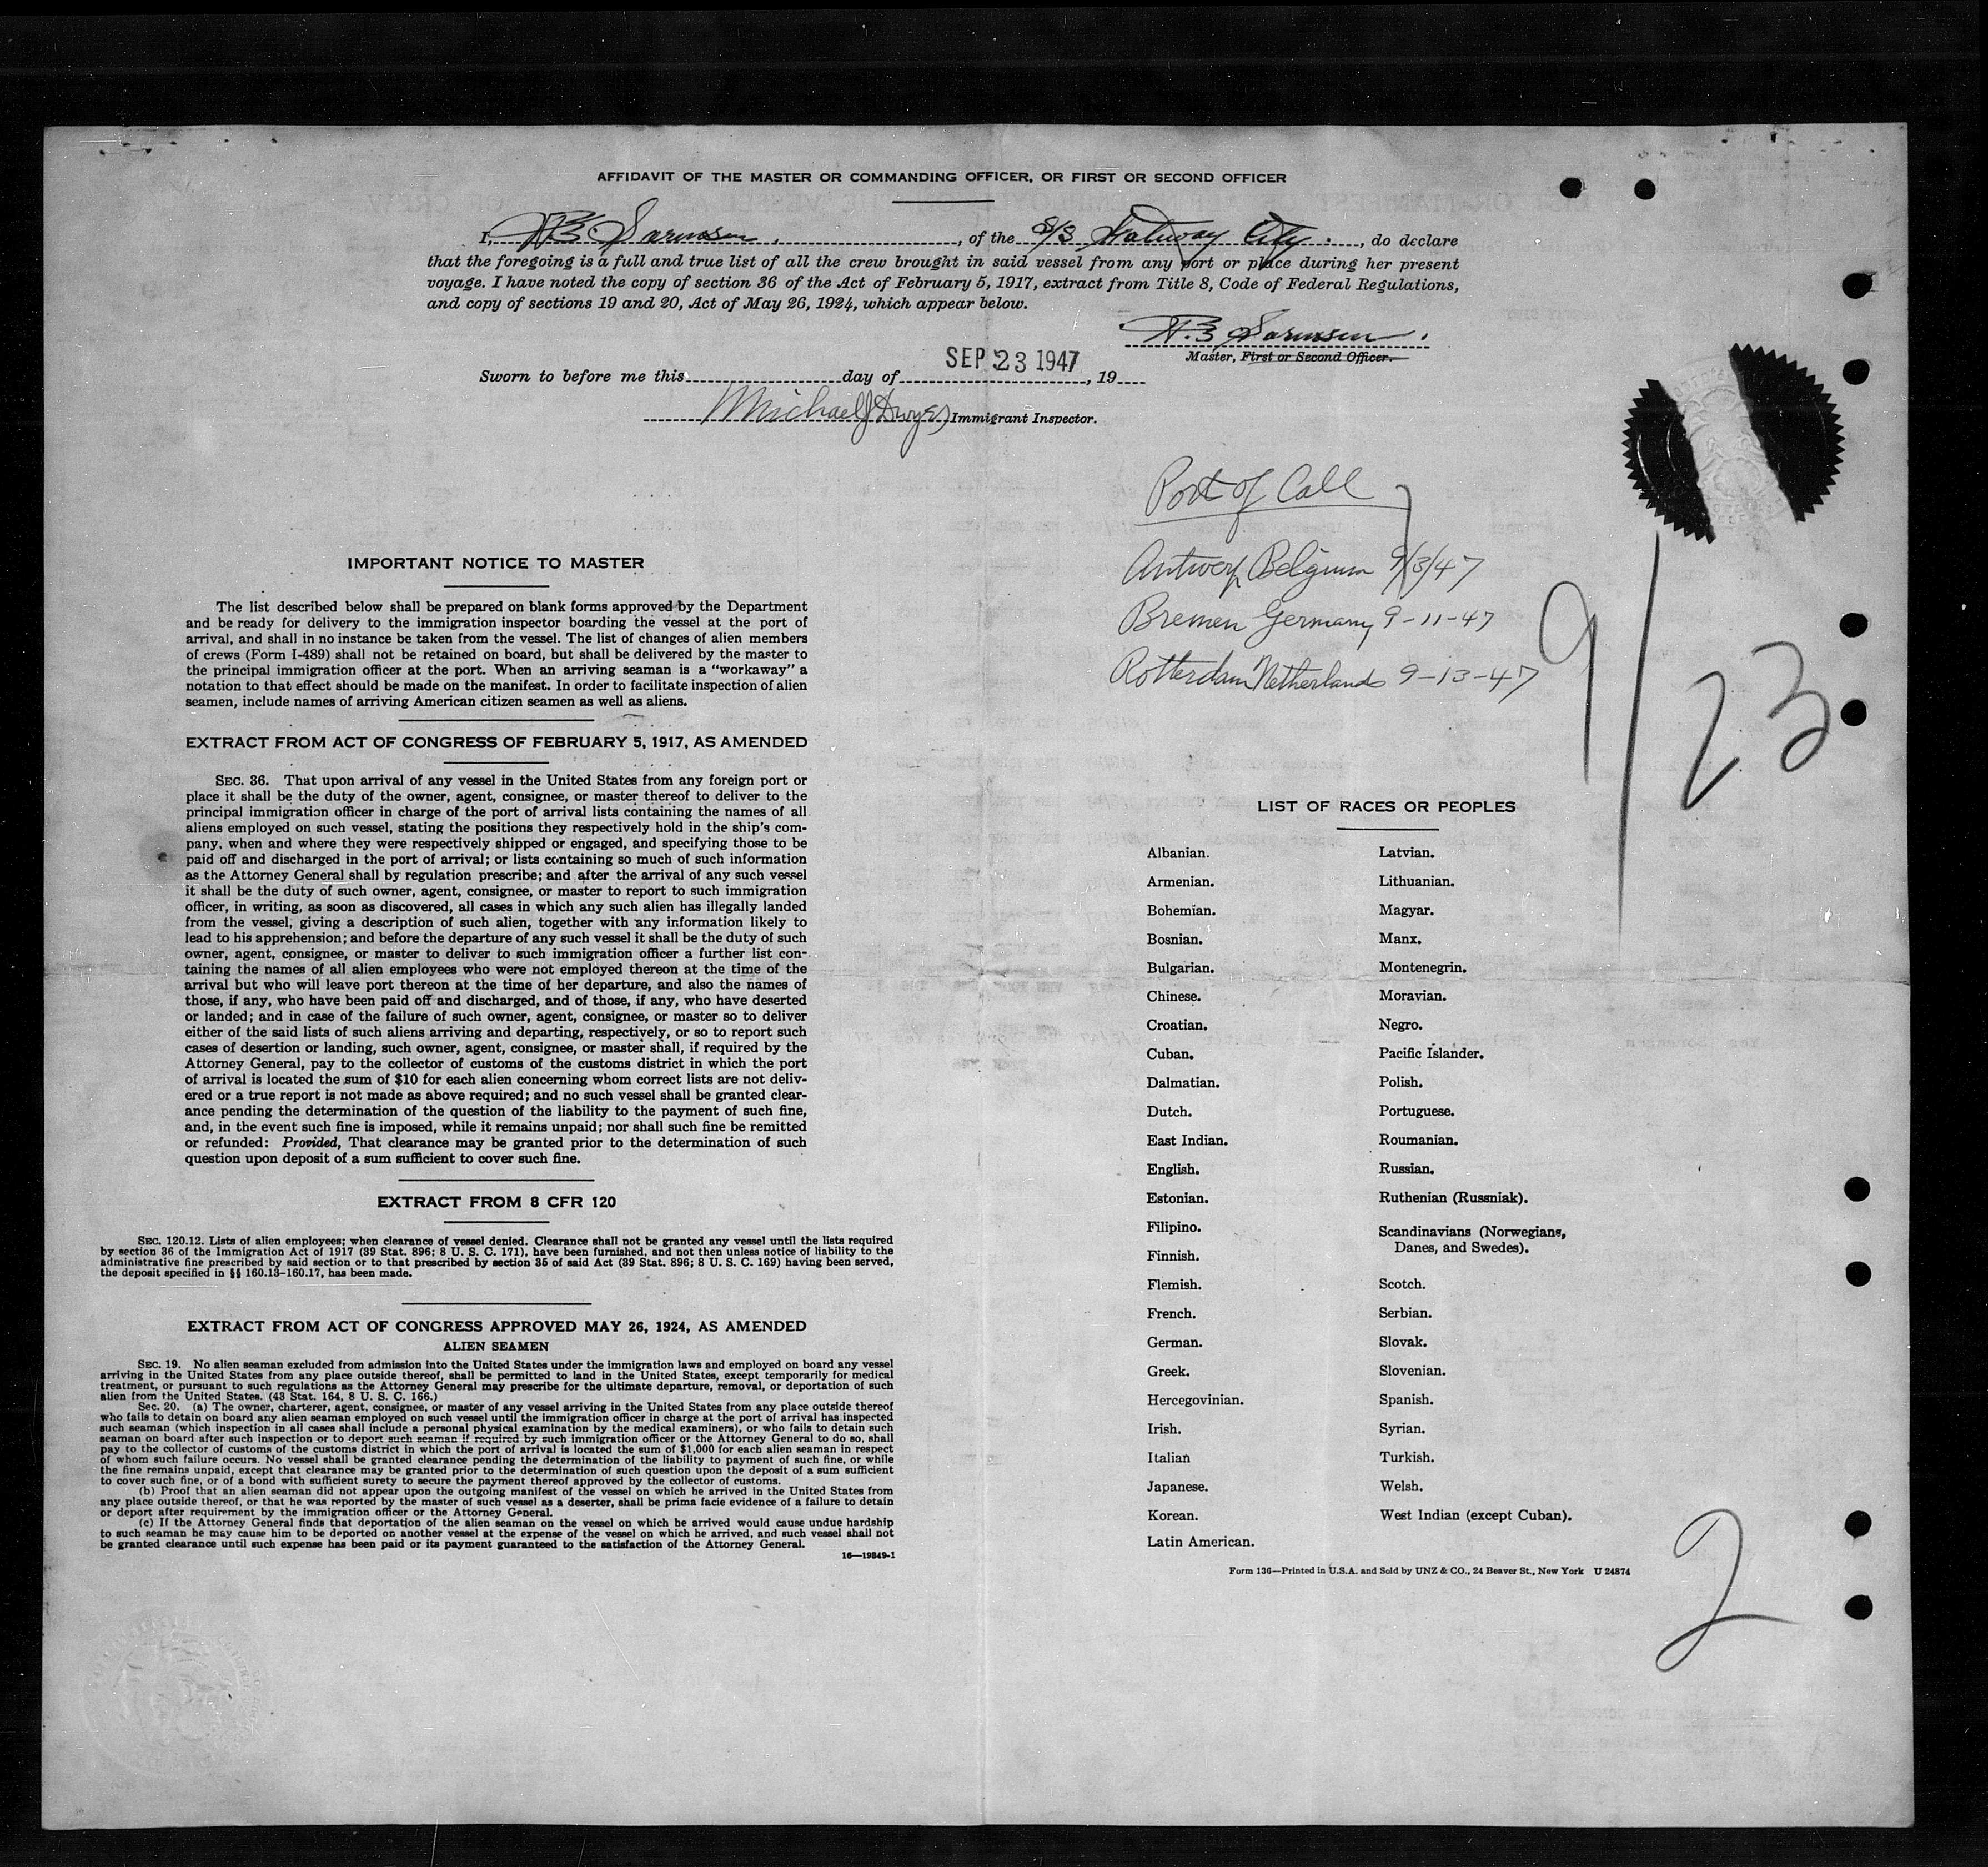 AFFIDAVIT OF THE MASTER OR COMMANDING OFFICER, OR FIRST OR SECOND OFFICER
I, Sorensen, of the S/S City, do declare
that the foregoing is a full and true list of all the crew brought in said vessel from any port or place during her present
voyage. I have noted the copy of section 36 of the Act of February 5, 1917, extract from Title 8, Code of Federal Regulations,
and copy of sections 19 and 20, Act of May 26, 1924, which appear below.
Sorensen
Master, First or Second Officer.
SEP 23 1947
Sworn to before me this day of , 19
Michael J Dwyer Immigrant Inspector.
Port of Call
Antwerp Belgium 9/3/47
Bremen Germany 9-11-47
Rotterdam Netherlands 9-13-47
9/23
IMPORTANT NOTICE TO MASTER
The list described below shall be prepared on blank forms approved by the Department
and be ready for delivery to the immigration inspector boarding the vessel at the port of
arrival, and shall in no instance be taken from the vessel. The list of changes of alien members
of crews (Form I-489) shall not be retained on board, but shall be delivered by the master to
the principal immigration officer at the port. When an arriving seaman is a "workaway" a
notation to that effect should be made on the manifest. In order to facilitate inspection of alien
seamen, include names of arriving American citizen seamen as well as aliens.
EXTRACT FROM ACT OF CONGRESS OF FEBRUARY 5, 1917, AS AMENDED
SEC. 36. That upon arrival of any vessel in the United States from any foreign port or
place it shall be the duty of the owner, agent, consignee, or master thereof to deliver to the
principal immigration officer in charge of the port of arrival lists containing the names of all
aliens employed on such vessel, stating the positions they respectively hold in the ship's com-
pany, when and where they were respectively shipped or engaged, and specifying those to be
paid off and discharged in the port of arrival; or lists containing so much of such information
as the Attorney General shall by regulation prescribe; and after the arrival of any such vessel
it shall be the duty of such owner, agent, consignee, or master to report to such immigration
officer, in writing, as soon as discovered, all cases in which any such alien has illegally landed
from the vessel, giving a description of such alien, together with any information likely to
lead to his apprehension; and before the departure of any such vessel it shall be the duty of such
owner, agent, consignee, or master to deliver to such immigration officer a further list con-
taining the names of all alien employees who were not employed thereon at the time of the
arrival but who will leave port thereon at the time of her departure, and also the names of
those, if any, who have been paid off and discharged, and of those, if any, who have deserted
or landed; and in case of the failure of such owner, agent, consignee, or master so to deliver
either of the said lists of such aliens arriving and departing, respectively, or so to report such
cases of desertion or landing, such owner, agent, consignee, or master shall, if required by the
Attorney General, pay to the collector of customs of the customs district in which the port
of arrival is located the sum of $10 for each alien concerning whom correct lists are not deliv-
ered or a true report is not made as above required; and no such vessel shall be granted clear-
ance pending the determination of the question of the liability to the payment of such fine,
and, in the event such fine is imposed, while it remains unpaid; nor shall such fine be remitted
or refunded: Provided, That clearance may be granted prior to the determination of such
question upon deposit of a sum sufficient to cover such fine.
EXTRACT FROM 8 CFR 120
SEC. 120.12. Lists of alien employees; when clearance of vessel denied. Clearance shall not be granted any vessel until the lists required
by section 36 of the Immigration Act of 1917 (39 Stat. 896; 8 U. S. C. 171), have been furnished, and not then unless notice of liability to the
administrative fine prescribed by said section or to that prescribed by section 35 of said Act (39 Stat. 896; 8 U. S. C. 169) having been served,
the deposit specified in §§ 160.13-160.17, has been made.
EXTRACT FROM ACT OF CONGRESS APPROVED MAY 26, 1924, AS AMENDED
ALIEN SEAMEN
SEC. 19. No alien seaman excluded from admission into the United States under the immigration laws and employed on board any vessel
arriving in the United States from any place outside thereof, shall be permitted to land in the United States, except temporarily for medical
treatment, or pursuant to such regulations as the Attorney General may prescribe for the ultimate departure, removal, or deportation of such
alien from the United States. (43 Stat. 164, 8 U. S. C. 166.)
Sec. 20. (a) The owner, charterer, agent, consignee, or master of any vessel arriving in the United States from any place outside thereof
who fails to detain on board any alien seaman employed on such vessel until the immigration officer in charge at the port of arrival has inspected
such seaman (which inspection in all cases shall include a personal physical examination by the medical examiners), or who fails to detain such
seaman on board after such inspection or to deport such seaman if required by such immigration officer or the Attorney General to do so, shall
pay to the collector of customs of the customs district in which the port of arrival is located the sum of $1,000 for each alien seaman in respect
of whom such failure occurs. No vessel shall be granted clearance pending the determination of the liability to payment of such fine, or while
the fine remains unpaid, except that clearance may be granted prior to the determination of such question upon the deposit of a sum sufficient
to cover such fine, or of a bond with sufficient surety to secure the payment thereof approved by the collector of customs.
(b) Proof that an alien seaman did not appear upon the outgoing manifest of the vessel on which he arrived in the United States from
any place outside thereof, or that he was reported by the master of such vessel as a deserter, shall be prima facie evidence of a failure to detain
or deport after requirement by the immigration officer or the Attorney General.
(c) If the Attorney General finds that deportation of the alien seaman on the vessel on which he arrived would cause undue hardship
to such seaman he may cause him to be deported on another vessel at the expense of the vessel on which he arrived, and such vessel shall not
be granted clearance until such expense has been paid or its payment guaranteed to the satisfaction of the Attorney General.
16—19849-1
LIST OF RACES OR PEOPLES
Albanian.
Armenian.
Bohemian.
Bosnian.
Bulgarian.
Chinese.
Croatian.
Cuban.
Dalmatian.
Dutch.
East Indian.
English.
Estonian.
Filipino.
Finnish.
Flemish.
French.
German.
Greek.
Hercegovinian.
Irish.
Italian
Japanese.
Korean.
Latin American.
Latvian.
Lithuanian.
Magyar.
Manx.
Montenegrin.
Moravian.
Negro.
Pacific Islander.
Polish.
Portuguese.
Roumanian.
Russian.
Ruthenian (Russniak).
Scandinavians (Norwegians,
Danes, and Swedes).
Scotch.
Serbian.
Slovak.
Slovenian.
Spanish.
Syrian.
Turkish.
Welsh.
West Indian (except Cuban).
Form 136—Printed in U.S.A. and Sold by UNZ & CO., 24 Beaver St., New York U 24874
2